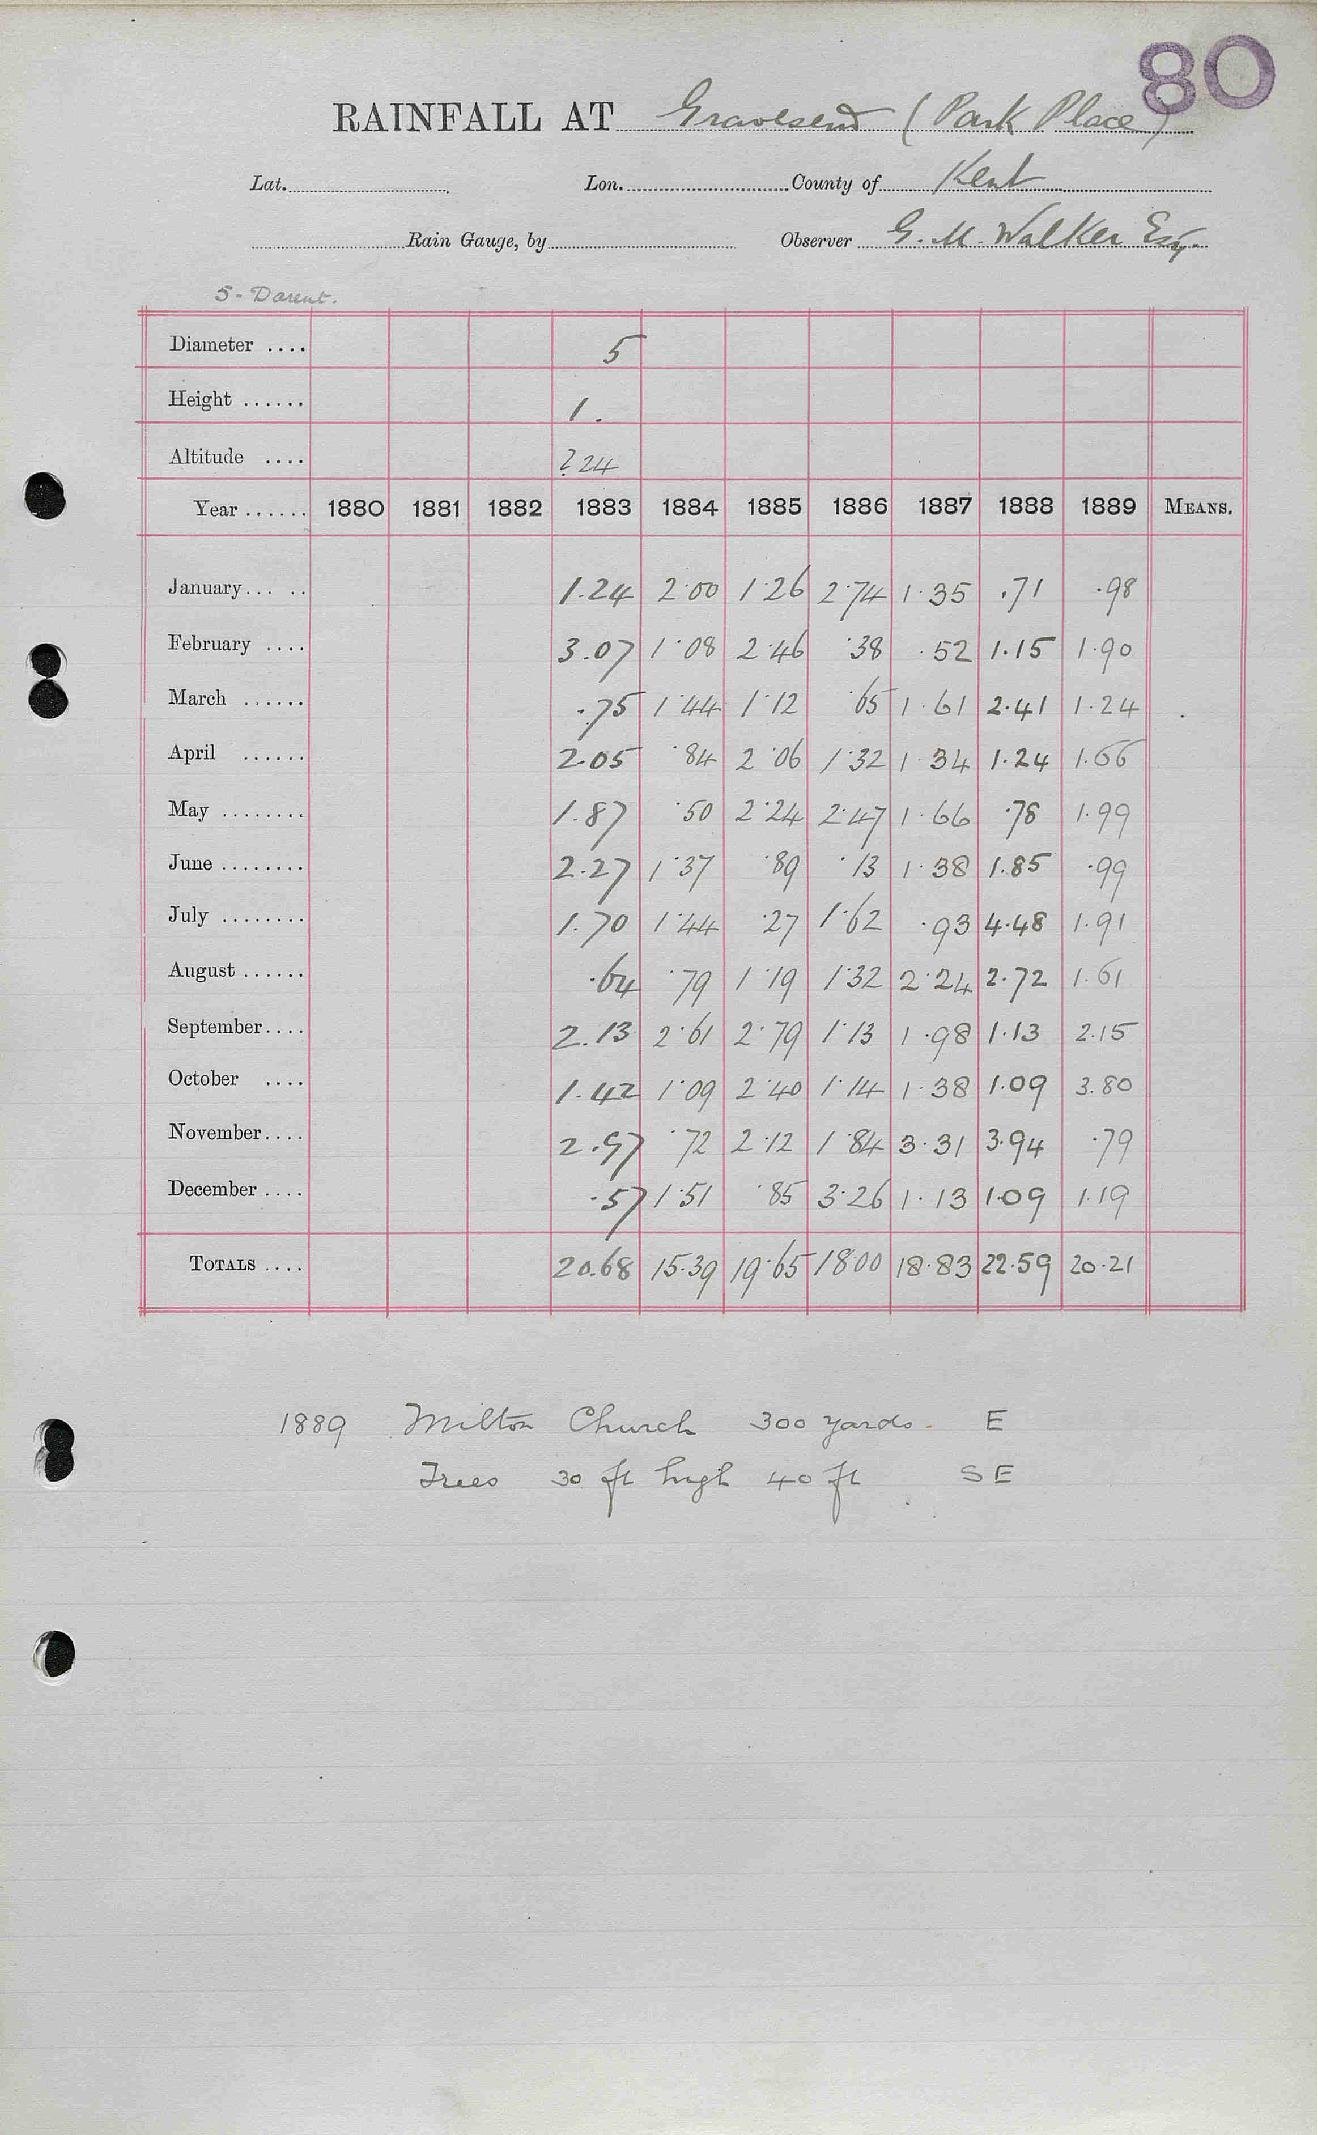 80
RAINFALL AT Gravesend (Park Place)
Lat. Lon. County of Kent
Rain Gauge, by Observer G. M. Walker Esq.
5 - Darent.
Diameter .... 5
Height ...... 1.
Altitude .... ?24
Year ...... 1880 1881 1882 1883 1884 1885 1886 1887 1888 1889 MEANS.
January... .. 1.24 2.00 1.26 2.74 1.35 .71 .98
February .... 3.07 1.08 2.46 .38 .52 1.15 1.90
March ...... .75 1.44 1.12 .65 1.61 2.41 1.24
April ...... 2.05 .84 2.06 1.32 1.34 1.24 1.66
May ........ 1.87 .50 2.24 2.47 1.66 .78 1.99
June ........ 2.27 1.37 .89 .13 1.38 1.85 .99
July ........ 1.70 1.44 .27 1.62 .93 4.48 1.91
August ...... .64 .79 1.19 1.32 2.24 2.72 1.61
September.... 2.13 2.61 2.79 1.13 1.98 1.13 2.15
October .... 1.42 1.09 2.40 1.14 1.38 1.09 3.80
November.... 2.97 .72 2.12 1.84 3.31 3.94 .79
December .... .57 1.51 .85 3.26 1.13 1.09 1.19
TOTALS .... 20.68 15.39 19.65 18.00 18.83 22.59 20.21
1889 Milton Church 300 yards. E
Trees 30 ft high 40 ft SE